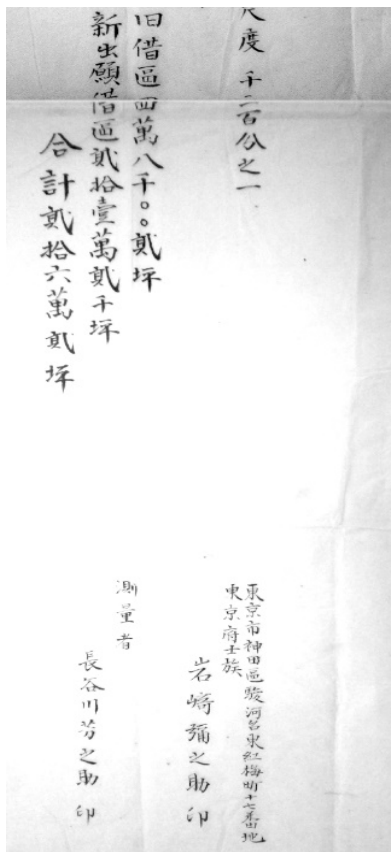 尺度 千二百分之一
旧借區四萬八千〇〇貳坪
新出願借區貳拾壹萬貳千坪
合計貳拾六萬貳坪
東京市神田區駿河台東紅梅町十七番地
東京府士族
岩崎彌之助印
測量者
長谷川芳之助印